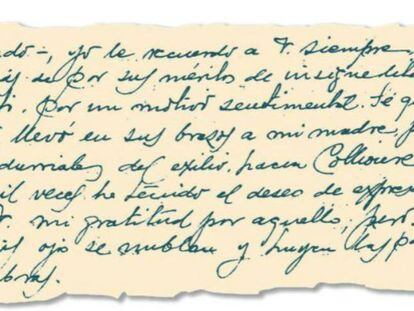 ado-, yo le recuerdo a V. siempre,
ás de por sus méritos de insigne lite
por un motivo sentimental. Sé q
llevó en sus brazos a mi madre, p
durriales del exilio, hacia Collioure
il veces he tenido el deseo de expres
V. mi gratitud por aquello, pero
os ojo se nublan y huyen las pa
abras.